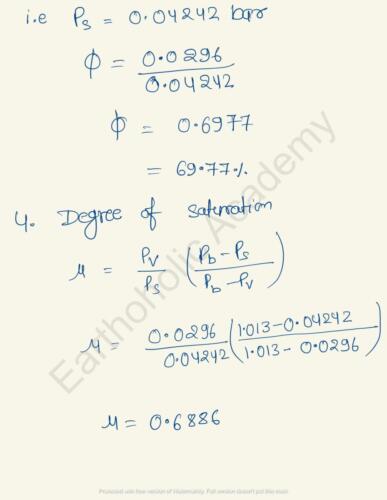 i.e Ps = 0.04242 bar
ϕ = 0.0296 / 0.04242
ϕ = 0.6977
= 69.77%
4. Degree of saturation
μ = Pv/Ps (Pb - Ps / Pb - Pv)
μ = 0.0296 / 0.04242 (1.013 - 0.04242 / 1.013 - 0.0296)
μ = 0.6886
Earthoholic Academy
Protected with free version of Watermarkly. Full version doesn't put this mark.